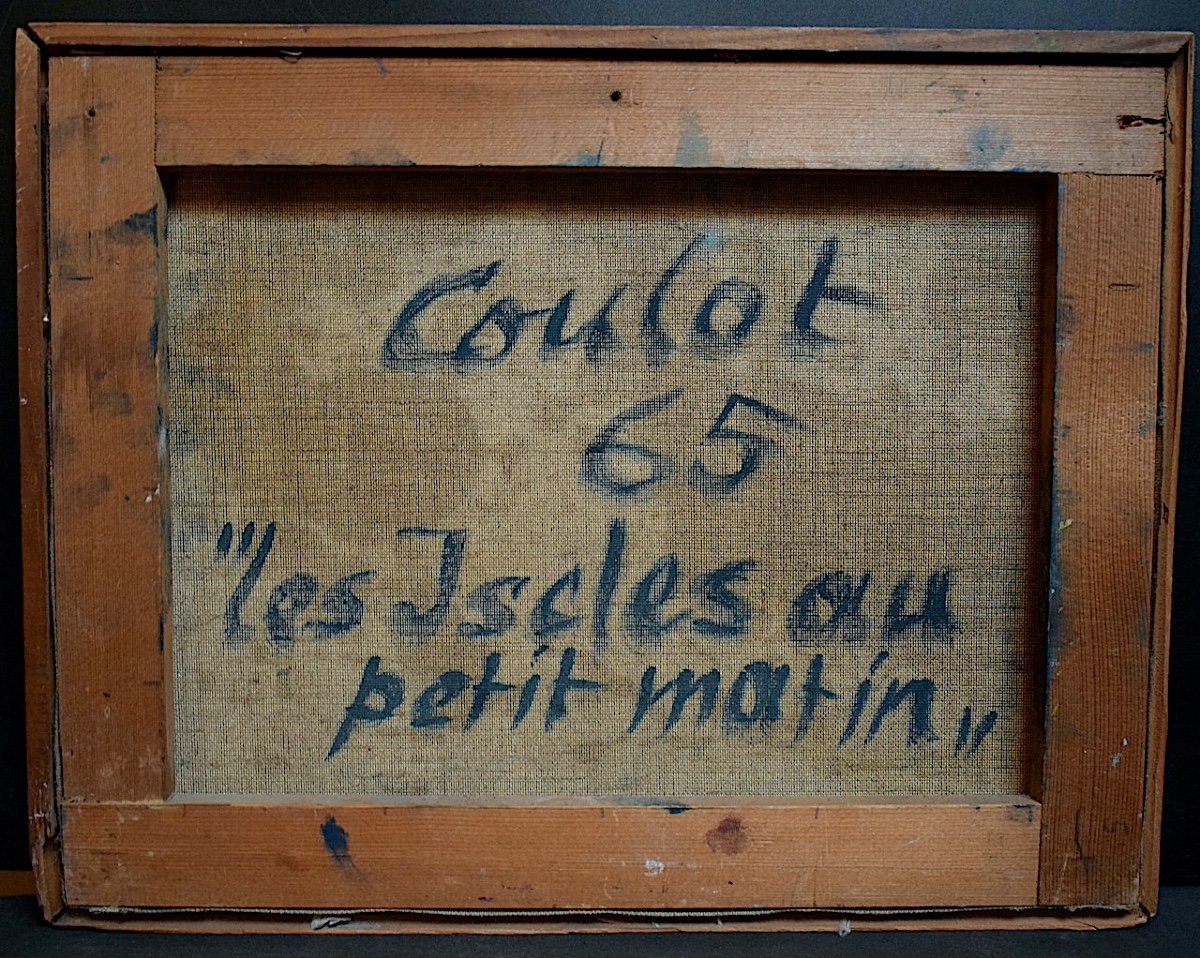 Coulot
65
"les Iscles au
petit matin"